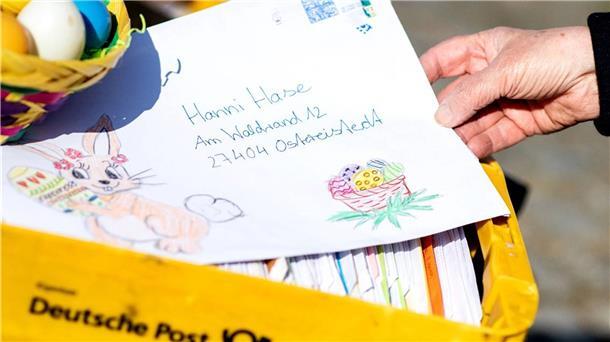 Hanni Hase
Am Waldrand 12
27404 Ostereistedt
Eigentum
Deutsche Post